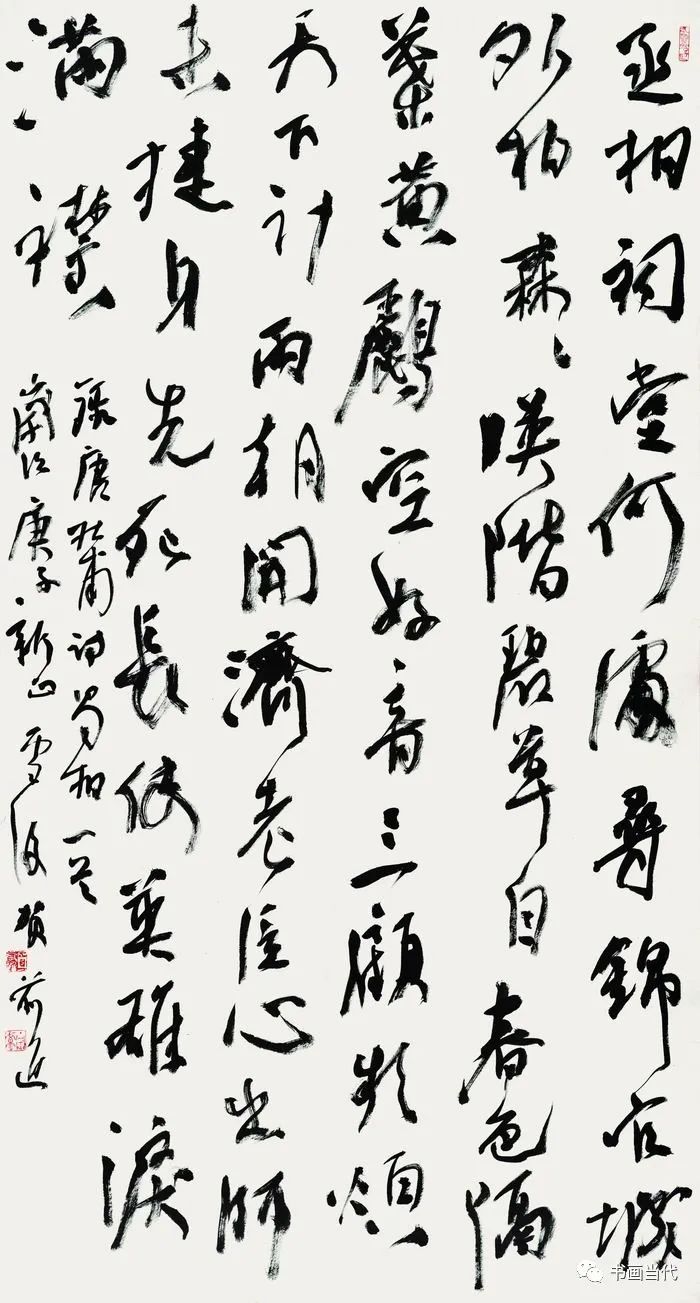 丞相祠堂何處尋錦官城
外柏森〻暎階碧草自春色隔
葉黄鸝空好音三顧頻煩
天下計兩朝開濟老臣心出師
未捷身先死長使英雄淚
滿襟
錄唐杜甫詩蜀相一首
歲次庚子新正雪後賀前進
书画当代